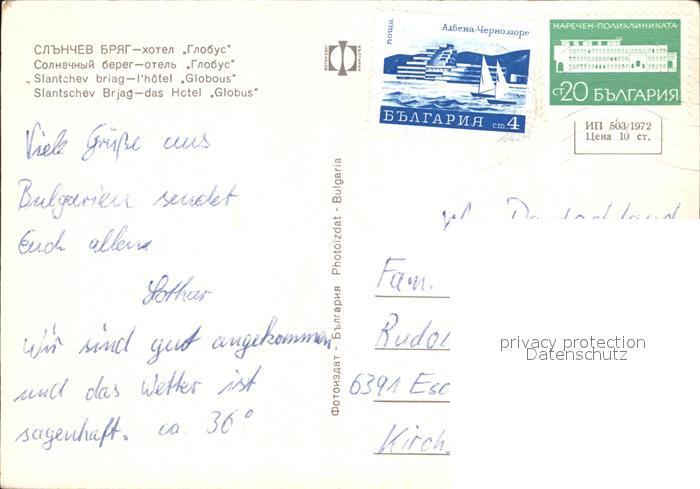 СЛЪНЧЕВ БРЯГ—хотел „Глобус"
Солнечный берег—отель „Глобус"
Slantchev briag—l'hôtel „Globous"
Slantschev Brjag—das Hotel „Globus"
поща
Албена-Черноморе
БЪЛГАРИЯ ст. 4
НАРЕЧЕН-ПОЛИКЛИНИКАТА
ст 20 БЪЛГАРИЯ
ИП 503/1972
Цена 10 ст.
Viele Grüße aus
Bulgarien sendet
Euch allen
Lothar
Wir sind gut angekommen
und das Wetter ist
sagenhaft. ca. 36°
Фотоиздат - България Photoizdat - Bulgaria
Deutschland
Fam.
Rudol
6391 Esc
Kirch
privacy protection
Datenschutz